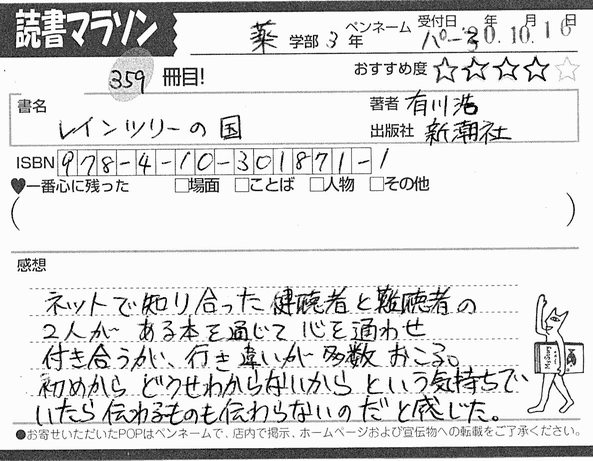 読書マラソン
薬 学部 3年 ペンネーム 受付日 年 月 日
10.10.16
359 冊目! おすすめ度 ☆☆☆☆☆
書名 著者 有川浩
レインツリーの国 出版社 新潮社
ISBN 978-4-10-301871-1
♥一番心に残った □場面 □ことば □人物 □その他
( )
感想
ネットで知り合った健聴者と難聴者の
2人が ある本を通じて 心を通わせ
付き合うが、行き違いが多数 おこる。
初めから どうせわからないから という気持ちで
いたら伝わるものも伝わらないのだ と感じた。
●お寄せいただいたPOPはペンネームで、店内で掲示、ホームページおよび宣伝物への転載をご了承ください。